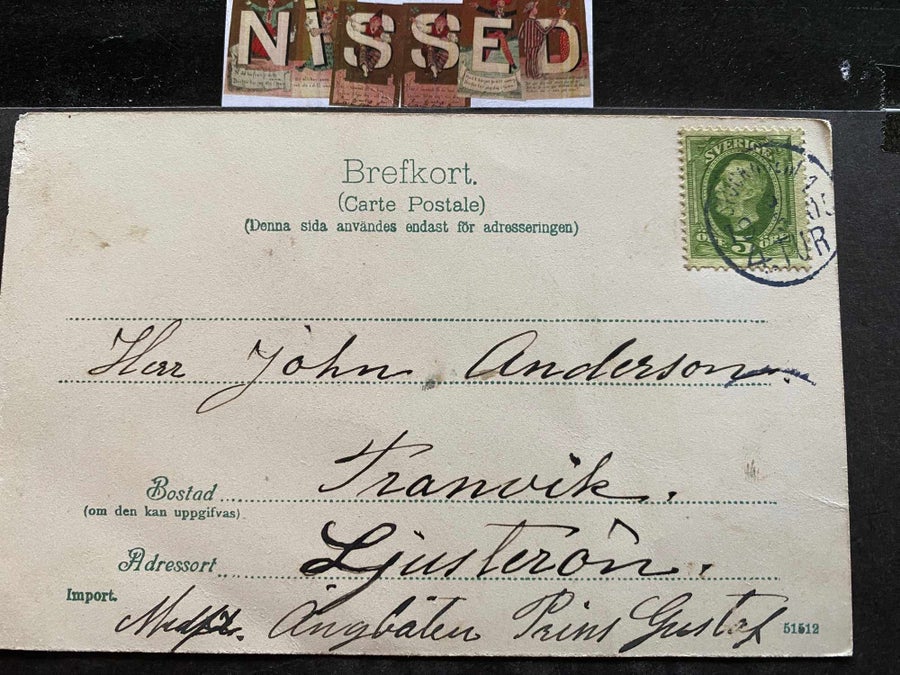 NiSSED
Brefkort.
(Carte Postale)
(Denna sida användes endast för adresseringen)
SVERIGE
ÖRE 5 ÖRE
4.TUR
Herr John Anderson.
Tranvik.
Bostad
(om den kan uppgifvas)
Ljusterön.
Adressort
Import.
Ångbåten Prins Gustaf
51512